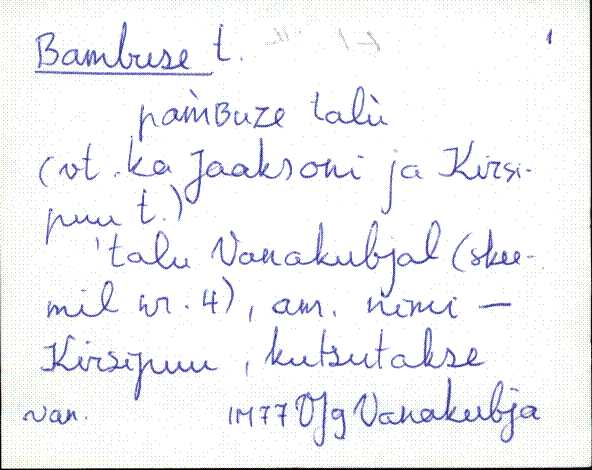 Bambuse t. 1
pam̀ʙuze talù
(vt. ka Jaaksoni ja Kirsi-
puu t.)
'talu Vanakubjal (skee-
mil nr. 4), am. nimi —
Kirsipuu, kutsutakse
van. 1M77 VJg Vanakubja